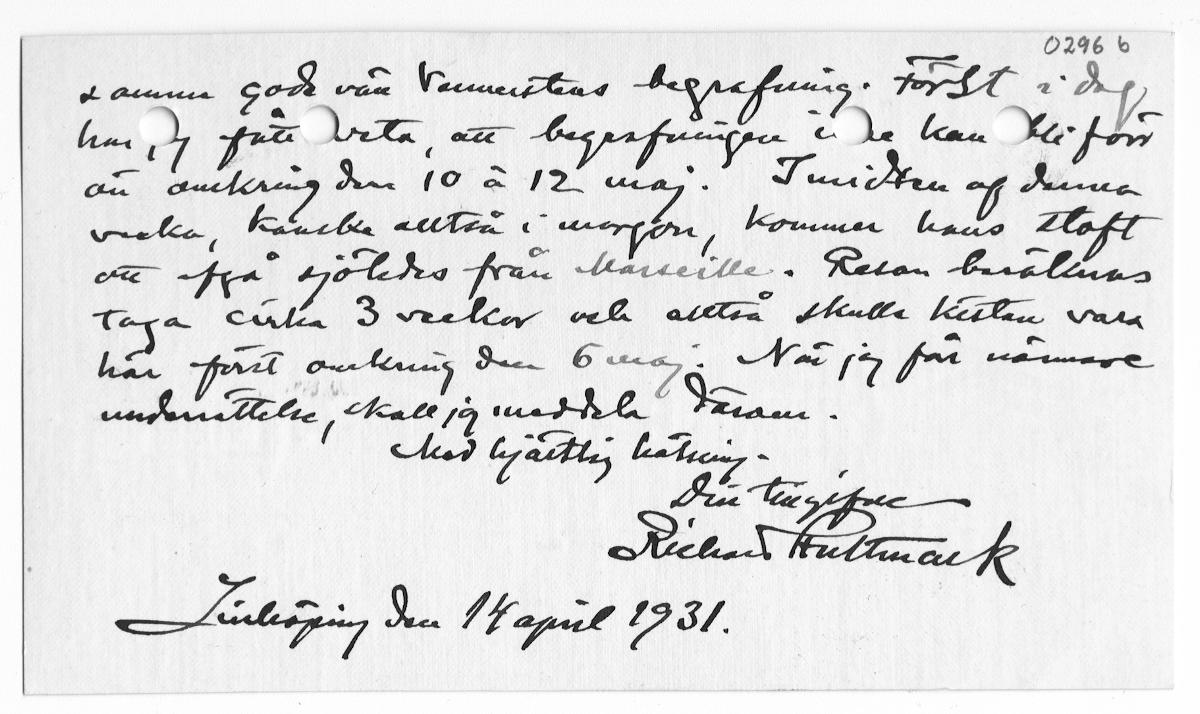 0296 b
samme gode vän Vennerstens begrafning. Först i dag
har jag fått veta, att begrafningen icke kan bli förr
än omkring den 10 à 12 maj. I midten af denna
vecka, kanske alltså i morgon, kommer hans stoft
att afgå sjöledes från Marseille. Resan beräknas
taga cirka 3 veckor och alltså skulle kistan vara
här först omkring den 6 maj. När jag får närmare
underrättelse, skall jag meddela därom.
Med hjärtlig hälsning.
Din tillgifne
Richard
Linköping den 14 april 1931.